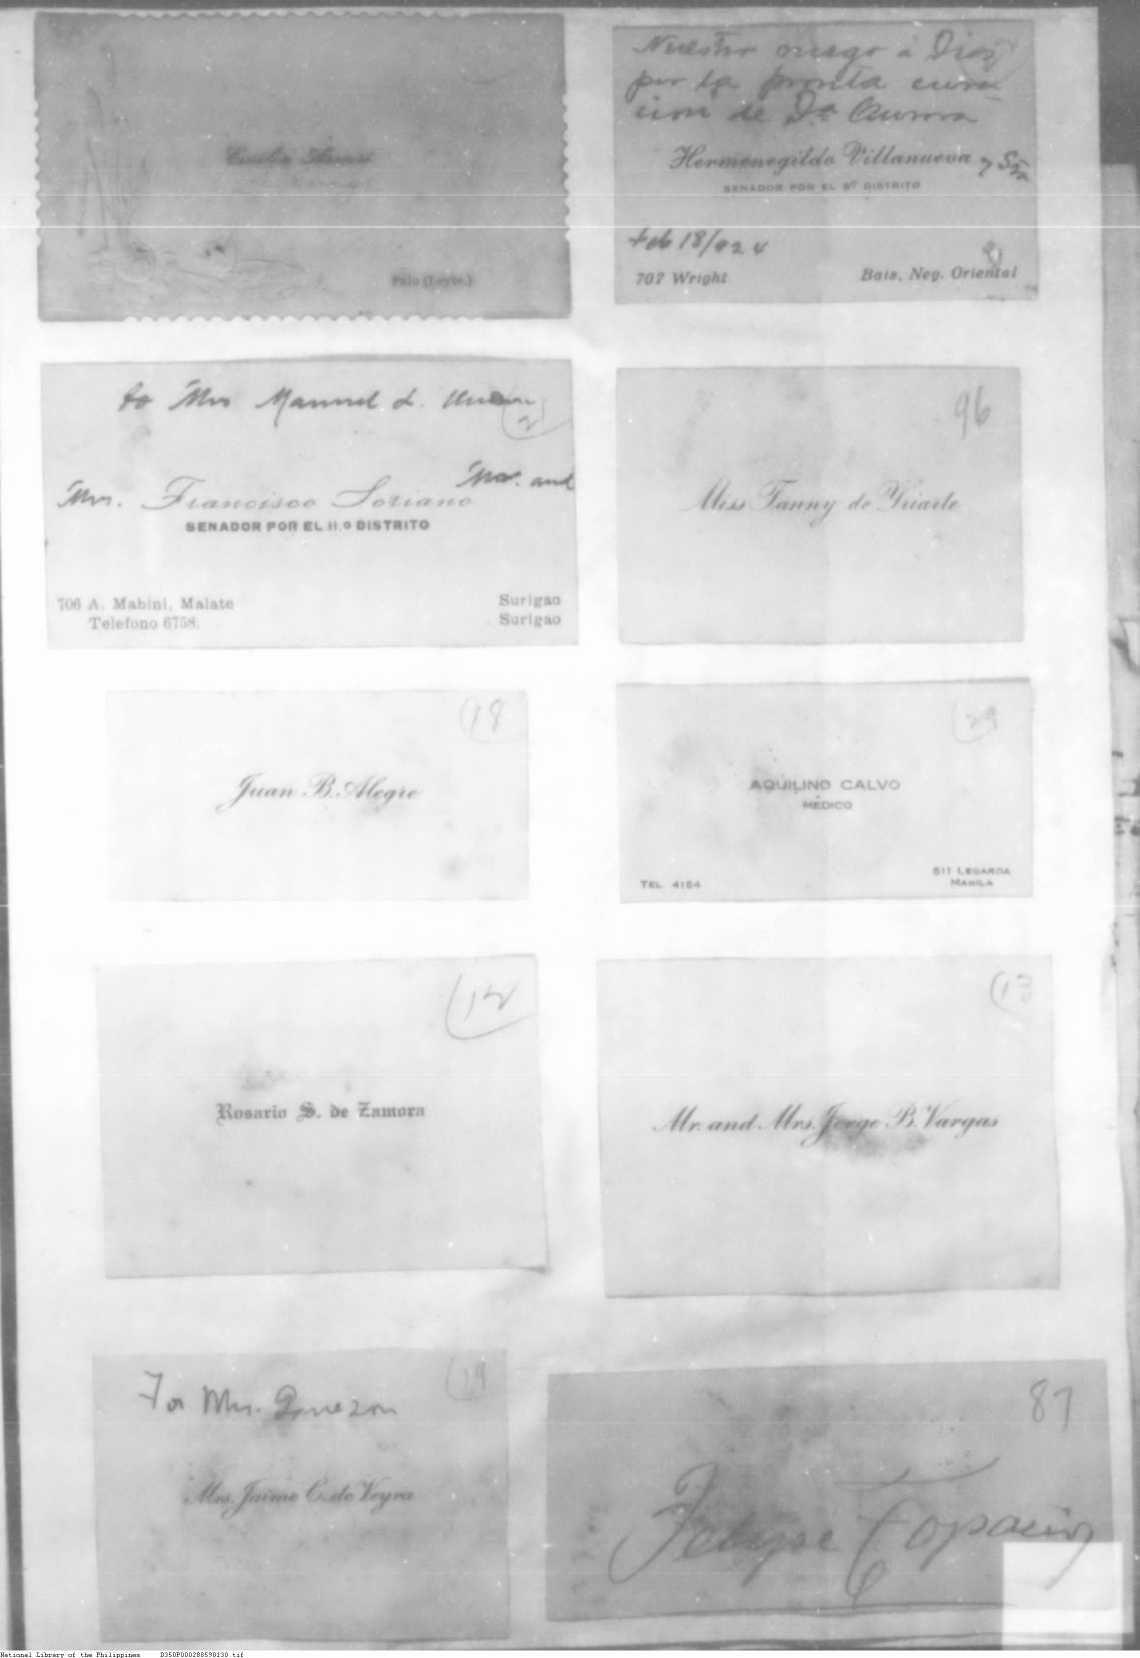 Palo (Leyte.)
Nuestro ruego à Dios
por la pronta cura-
cion de Dª Aurora
Hermenegildo Villanueva y Sra
SENADOR POR EL 8º DISTRITO
Feb 18/924
707 Wright
Bais, Neg. Oriental
to Mrs Manuel L. Quezon
2
Mr. and
Mrs. Francisco Soriano
SENADOR POR EL 11.º DISTRITO
706 A. Mabini, Malate
Telefono 6758.
Surigao
Surigao
96
Miss Fanny de Yriarte
18
Juan B. Alegre
29
AQUILINO CALVO
MÉDICO
TEL. 4154
511 LEGARDA
MANILA
12
Rosario S. de Zamora
13
Mr. and Mrs. Jorge B. Vargas
For Mrs. Quezon
Mrs. Jaime C. de Veyra
87
Felipe Topacio
National Library of the Philippines D350P000288598130.tif